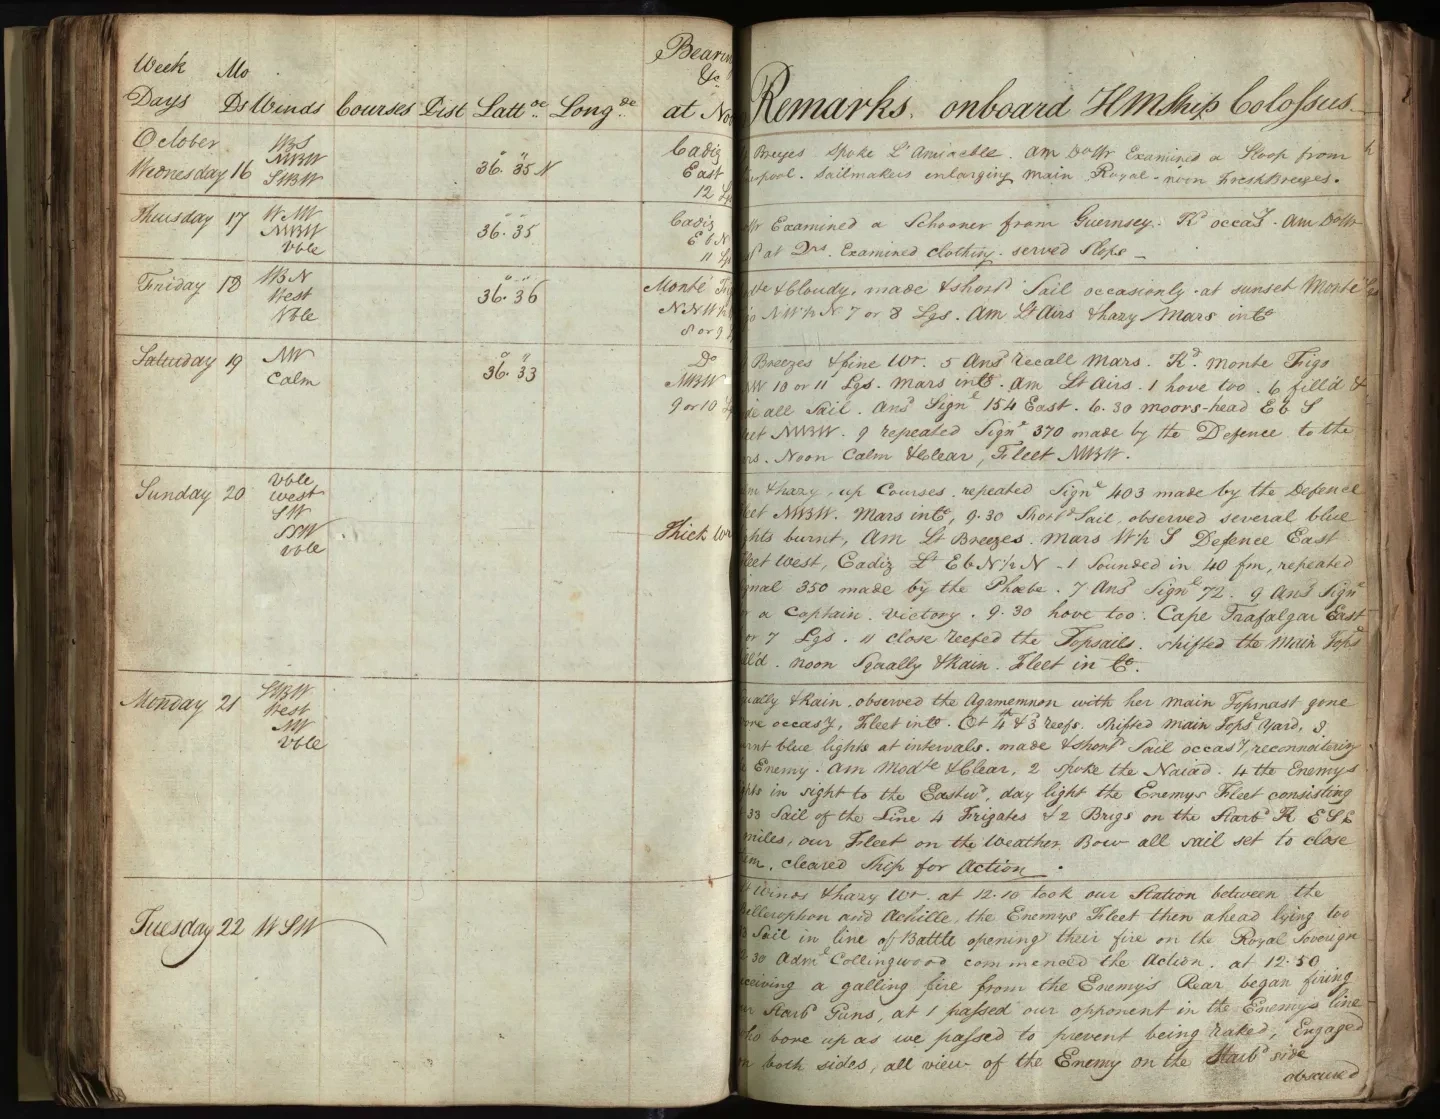 Week Mo Bearin
&c
Days Ds Winds Courses Dist Latt.de Long.de at Noo
October WBS Cadiz
NWBW
Wednesday 16 SWBW 36.35 N East
12 Lg
Thursday 17 WNW Cadiz
NWBW 36.35 EbN
Vble 11 Lg
Friday 18 WBN Monte Fig
West 36.36 NNW
Vble 8 or 9
Saturday 19 NW Do
Calm 36.33 NWBW
9 or 10 Lg
Vble
Sunday 20 West
SW
SSW Thick Wr
Vble
SWBW
Monday 21 West
NW
Vble
Tuesday 22 WSW
Remarks. onboard HMShip Colossus
Breezes Spoke L'Amiaeble. Am Do Wr Examined a Sloop from
pool. Sailmakers enlarging Main Royal - noon Fresh Breezes.
Wr Examined a Schooner from Guernsey. Kd occasy. Am Do Wr
at Qrs. Examined Clothing - served Slops
& Cloudy, made & shortd Sail occasionly - at sunset Monte
NW½N 7 or 8 Lgs. Am Lt Airs & hazy Mars in Co
Breezes & fine Wr. 5 Ansd recall Mars. Kd. Monte Figo
10 or 11 Lgs. Mars in Co. Am Lt Airs. 1 hove too. 6 fill'd &
all Sail. Ansd Signl 154 East. 6.30 moors-head E b S
NWBW. 9 repeated Signl 370 made by the Defence to the
Noon Calm & Clear, Fleet NWBW.
& hazy, up Courses. repeated Signl 403 made by the Defence
NWBW. Mars in Co, 9.30 Shortd Sail, observed several blue
ghts burnt, Am Lt Breezes. Mars W½S Defence East
leet West, Cadiz Lt E b N½N - 1 Sounded in 40 fm, repeated
gnal 350 made by the Phœbe. 7 Ansd Signl 72. 9 Ansd Signl
a Captain. Victory. 9.30 hove too. Cape Trafalgar East
or 7 Lgs. 11 close reefed the Topsails. shifted the Main Tops
noon Squally & Rain. Fleet in Co.
ually & Rain. observed the Agamemnon with her main Topmast gone
occasy, Fleet in Co. Ot 4th & 3 reefs. Shifted Main Topsl Yard, 8
rnt blue lights at intervals. made & shortd Sail occasy, reconnoitering
Enemy. Am Modte & Clear, 2 spoke the Naiad. 4 the Enemys
hts in sight to the Eastwd, day light the Enemys Fleet consisting
33 Sail of the Line 4 Frigates & 2 Brigs on the Starbd Tk ESE
miles, our Fleet on the Weather Bow all sail set to close
em, cleared Ship for Action
Winds & hazy Wr. at 12.10 took our Station between the
ellerophon and Achille, the Enemys Fleet then ahead lying too
Sail in line of Battle opening their fire on the Royal Sovereign
30 Adml Collingwood commenced the Action. at 12.50
ceiving a galling fire from the Enemy's Rear began firing
Starbd Guns, at 1 passed our opponent in the Enemys line
ho bore up as we passed to prevent being raked, Engaged
on both sides, all view of the Enemy on the Starbd side
obscured